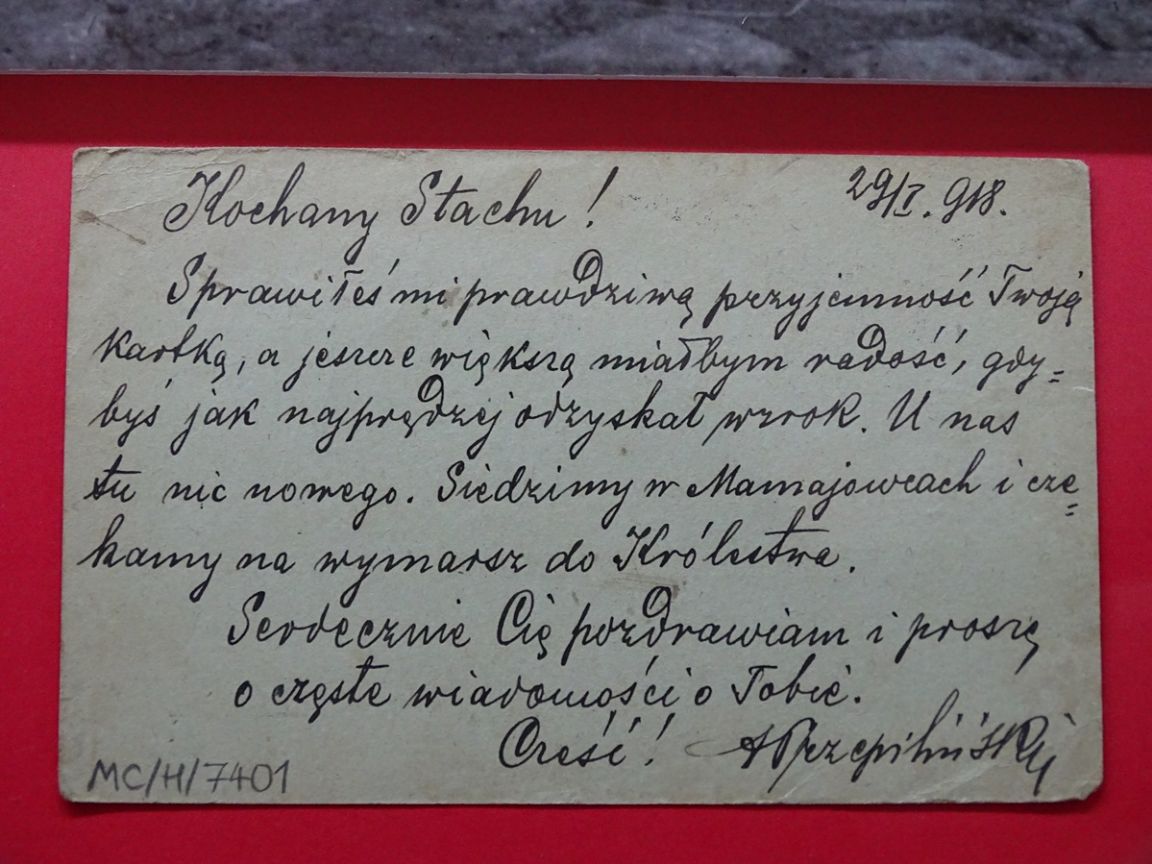 Kochany Stachu! 29/I. 918.
Sprawiłeś mi prawdziwą przyjemność Twoją
kartką, a jeszcze większą miałbym radość, gdy=
byś jak najprędzej odzyskał wzrok. U nas
tu nic nowego. Siedzimy w Mamajowcach i cze=
kamy na wymarsz do Królestwa.
Serdecznie Cię pozdrawiam i proszę
o częste wiadomości o Tobie.
Cześć!
MC/H/7401